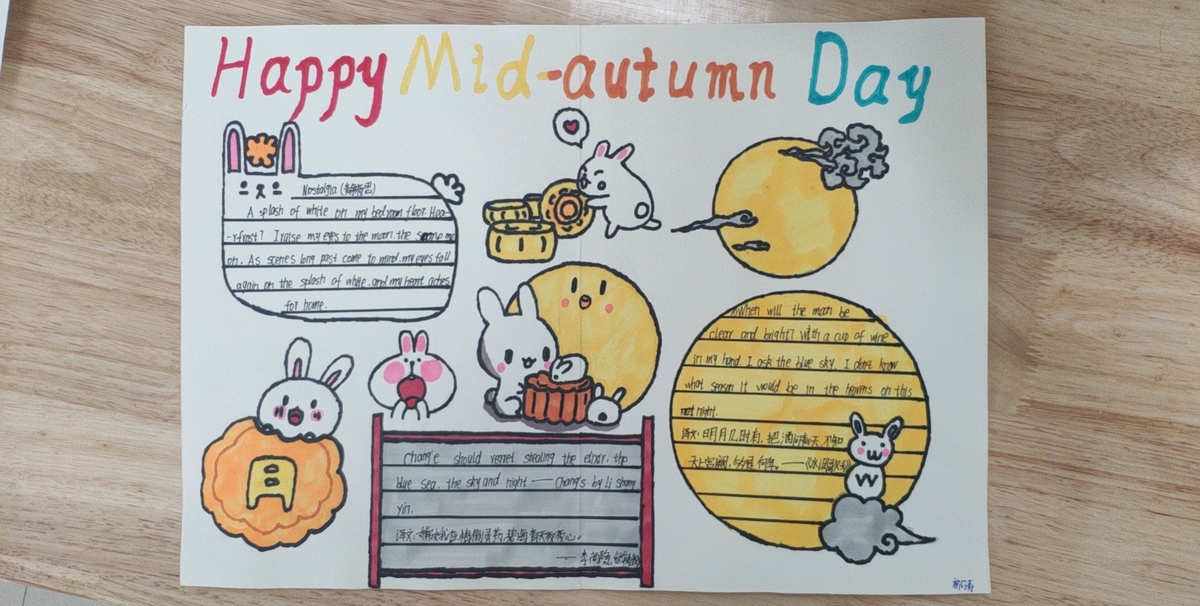 Happy Mid-autumn Day
Nostalgia (静夜思)
A splash of white on my bedroom floor. Hoa-
-rfrost? I raise my eyes to the moon. the same mo
on. As scenes long past come to mind. my eyes fall
again on the splash of white. and my heart aches
for home.
When will the moon be
clear and bright? With a cup of wine
in my hand. I ask the blue sky. I don't know
what season it would be in the heavens on this
night.
译文:明月几时有,把酒问青天,不知
天上宫阙,今夕是何年。——
月
chang'e should regret stealing the elixir. the
blue sea. the sky and night —— Chang's by Li shang
yin.
译文:嫦娥应悔偷灵药,碧海青天夜夜心。
—— 李商隐